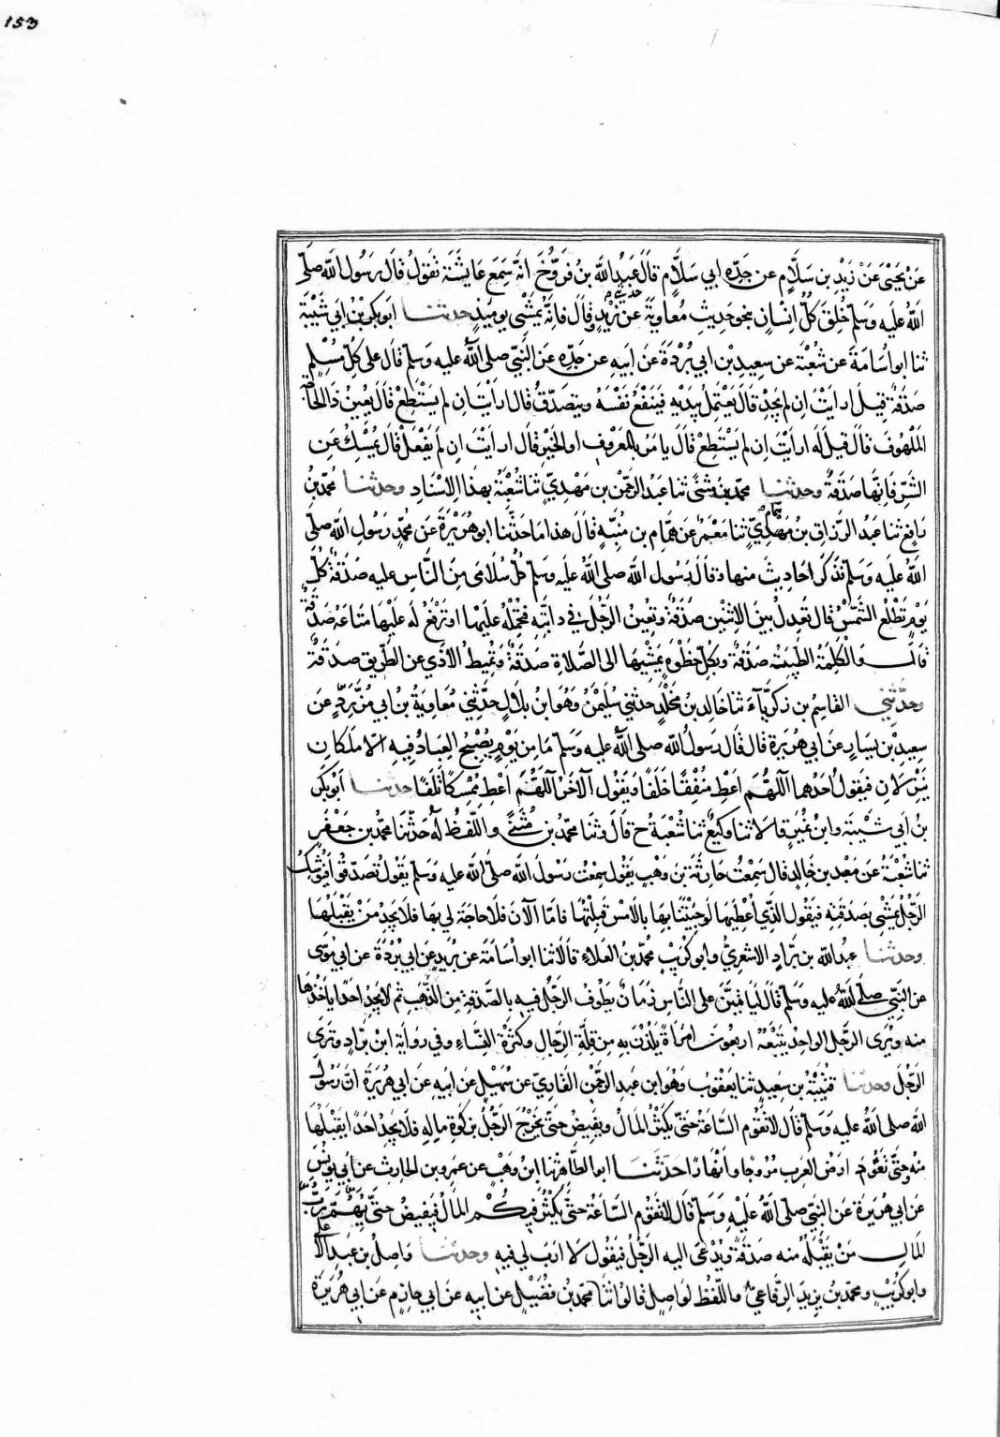 153
عَنْ يَحْيَى عَنْ زَيْدِ بن سَلَّامٍ عن جَدِّهِ ابي سَلَّامٍ قالَ عَبْدُ اللَّه بن فَرَّوُخَ انَّهُ سَمِعَ عَايِشَةَ تَقوُلُ قالَ رَسُول اللَّه صلَّى
اللَّهُ عليه وَسَلم خُلِقَ كُلُّ انْسانٍ بنحو حَدِيثِ مُعاوِيةَ عن زَيْدٍ وقَالَ فانَّهُ يَمْشْى يوميذٍ حدثنا ابوبكر بْنُ ابي شَيْبَةَ
ثنا ابو اُسَامَةَ عن شُعْبَةَ عن سعِيدِ بن ابي بُرْدَةَ عَن ابيهِ عن جَدِّهِ عَنِ النَّبيِّ صلى اللَّه عليه وَسَلم قالَ على كلِّ مُسْلِمٍ
صَدَقَةٌ قِيلَ ارايْتَ ان لم يَجِدْ قالَ يَعْتَمِلُ بِيَدَيْهِ فَيَنْفَعُ نَفْسَهُ ويتصَدَّقُ قال ارَايْتَ ان لم يَسْتَطِعْ قالَ يُعِينُ ذَا الحَاجةِ
المَلْهُوفَ قالَ قيلَ لَه ارايْتَ ان لم يَسْتَطِعْ قالَ يامُر بالمَعْروُفِ اوالخَيْرِ قالَ ارايْتَ ان لَم يَفْعَلْ قالَ يُمْسِكُ عَنِ
الشَّرِّ فَانَّها صَدَقةٌ وحدثنا محمَّد بن مثنىَّ ثنا عَبدُ الرَّحمَنِ بن مَهْدِيٍّ ثنا شُعْبَةُ بهذا الاِسْنَادِ وحدثنا مُحمَّد بنُ
رَافِعٍ ثنا عَبْدُ الرَّزاقِ بن ثنا مَعْمَرٌ عَن همَّام بن مُنَبِّهٍ قالَ هذا مَا حَدَّثَنا ابوهُرَيْرَةَ عَن محمَّدٍ رَسُولِ اللَّه صلى
اللَّهُ عليهِ وَسَلم فَذَكَرَ احَادِيثَ منها وقالَ رَسُول اللَّه صلى اللَّهُ عليه وَسَلم كُلُّ سُلامى مِنَ النَّاسِ عليه صَدَقَةٌ كلَّ
يَوْمٍ تَطْلُعُ الشَّمْسُ قالَ تَعْدِلُ بينَ الاِثْنَيْنِ صَدَقَةٌ وتُعِينُ الرَّجُلَ في دابَّتِهِ فتَحْمِلُه عليها او تَرْفَعُ لَه عَلَيْها مَتَاعَهُ صَدَقَةٌ
قالَ وَالكلِمَةُ الطَّيِّبَةُ صَدَقةٌ وبكلِّ خَطْوَةٍ يَمْشِيها الى الصَّلاةِ صَدَقَةٌ وتُميطُ الاذى عن الطَّرِيقِ صدَقَةٌ
وحدَّثني القاسِم بن زَكرِيَّاءَ ثنا خَالِد بن مَخْلَدٍ حدثني سُلَيْمَنُ وهُوَ ابْنُ بلالٍ حدَّثَنِي مُعَاوِيَةُ بن ابي مُزَرِّدٍ عن
سعِيدِ بْن يَسَارٍ عن ابي هُريرَة قالَ قالَ رَسُولُ اللَّه صلى اللَّهُ عليه وَسَلم ما مِن يَوْمٍ يُصْبِحُ العِبَادُ فِيهِ الا مَلَكانِ
يَنْزِلانِ فيَقُولُ احَدُهُما اللَّهُمَّ اعْطِ مُنْفِقًا خَلَفًا ويَقُولُ الآخَرُ اللَّهُمَّ اعْطِ مُمْسِكًا تَلَفًا حدثنا ابُوبكر
بْن ابي شَيْبَةَ وابْنُ نُمَيْرٍ قالا ثنا وكيعٌ ثنا شُعْبَةُ ح قالَ وثنا محمَّدُ بن مُثَنَّى واللَّفظُ لَهُ حدَّثَنا محمَّدُ بن جَعْفَرٍ
ثنا شُعْبَةُ عَن مَعْبَدِ بن خَالِدٍ قال سَمِعْتُ حارِثَةَ بْن وَهْبٍ يَقُولُ سمِعْتُ رَسُولَ اللَّه صلى اللَّهُ عليه وَسَلم يَقُولُ تَصَدَّقُوا فيُوشِكُ
الرَّجُلُ يَمْشِي بِصَدَقتِهِ فيَقُولُ الَّذِي اُعْطِيَها لَو جِئْتَنا بها بالامْسِ قَبِلْتُها فامَّا الآنَ فَلا حاجَةَ لي بها فَلا يَجِدُ مَنْ يَقْبَلُها
وحدثنا عبدُ اللَّه بن بَرَّادٍ الاشعَرِيُّ وابوكُرَيْبٍ محمَّدُ بن العَلاءِ قالا ثنا ابو اُسَامَةَ عن بُرَيدٍ عَن ابي بُرْدَةَ عن ابي مُوسَى
عن النَّبِيِّ صلى اللَّه عليه وَسَلم قالَ لَيَاتِيَنَّ على النَّاس زَمانٌ يَطُوفُ الرَّجُلُ فيهِ بالصَّدقَةِ مِنَ الذَّهَبِ ثم لا يَجِدُ احَدًا يَاخُذُها
منه ويُرَى الرَّجُل الواحِدُ يَتْبَعُهُ اربَعُونَ امْرَاةً يَلُذْنَ بِهِ مِن قِلَّةِ الرِّجَالِ وكثْرَةِ النِّسَاءِ وفي رِوايَةِ ابْن بَرَّادٍ وتَرَى
الرَّجُلَ وحدثنا قُتَيْبَةُ بن سَعِيدٍ ثنا يَعْقُوبُ وَهُوَ ابن عَبدِ الرحْمَنِ القَارِيّ عن سُهَيْلٍ عَن ابيهِ عَن ابي هُرَيْرَةَ انَّ رَسُولَ
اللَّه صلى اللَّهُ عليه وَسَلم قَالَ لا تَقُوم السَّاعَة حتَّى يَكثُرَ المَالُ ويَفِيضَ حتَّى يَخْرُجَ الرَّجُلُ بزَكَوةِ مالِهِ فَلا يَجِدُ احَدًا يَقْبَلُها
منه وحتَّى تَعُودَ ارْضُ العَرَبِ مُرُوجا وانْهَارًا حَدَّثَنَا ابو الطَّاهِرِ ثنا ابْنُ وَهْبٍ عن عَمرِو بن الحَارِث عَن ابي يُونُسَ
عَن ابي هُرَيْرَةَ عَن النَّبيِّ صلَّى اللَّه عَلَيْهِ وَسَلم قَالَ لا تَقُوم السَّاعَة حتَّى يَكْثُرَ فِيكُمُ المَالُ فيَفِيضَ حتَّى يُهِمَّ رَبَّ
المَالِ مَنْ يَقْبَلُهُ منه صَدَقَةً ويُدْعَى اليه الرَّجُلُ فيَقُول لا ارَبَ لي فِيهِ وحدثنا وَاصِلُ بن عَبدِ الاَعْلى
وابوكُرَيْبٍ ومحمَّد بن يَزيدَ الرِّفاعيُّ واللَّفْظُ لوَاصِلٍ قالوا ثَنا محمَّد بن فُضَيْلٍ عن ابيه عَن ابي حازِمٍ عَن ابي هُرَيْرَةَ